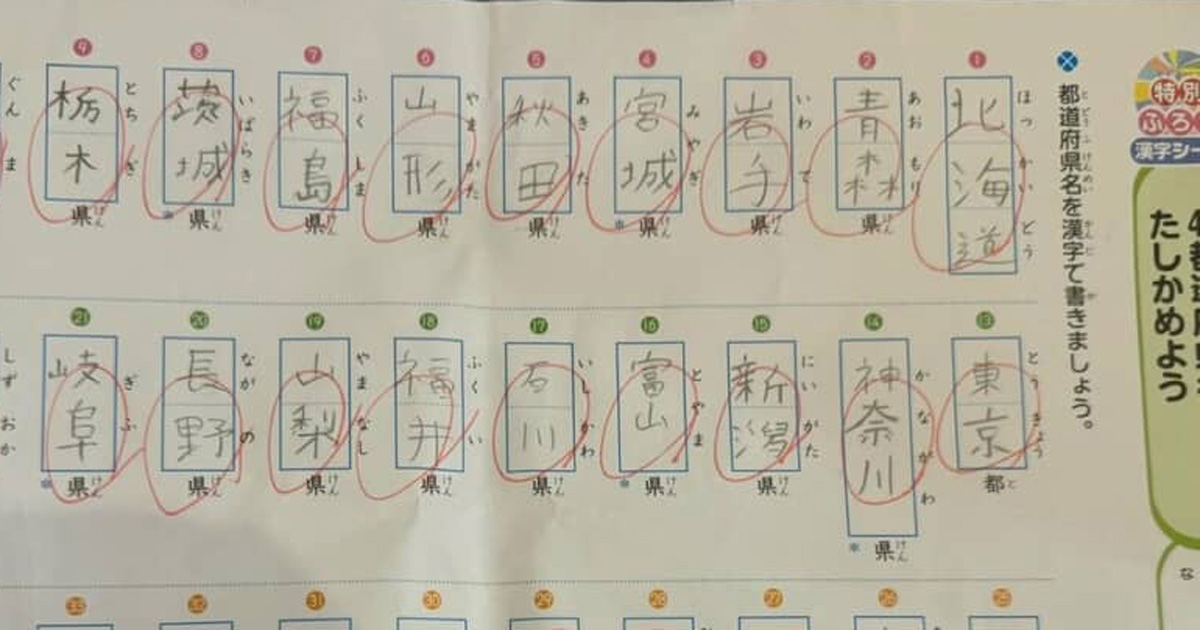 特別
ふろ
漢字シー
たしかめよう
都道府県名を漢字で書きましょう。
① 北海道 ほっかいどう
② 青森県 あおもりけん
③ 岩手県 いわてけん
④ 宮城県 みやぎけん
⑤ 秋田県 あきたけん
⑥ 山形県 やまがたけん
⑦ 福島県 ふくしまけん
⑧ 茨城県 いばらきけん
⑨ 栃木県 とちぎけん
ぐんま
⑬ 東京都 とうきょうと
⑭ 神奈川県 かながわけん
⑮ 新潟県 にいがたけん
⑯ 富山県 とやまけん
⑰ 石川県 いしかわけん
⑱ 福井県 ふくいけん
⑲ 山梨県 やまなしけん
⑳ 長野県 ながのけん
㉑ 岐阜県 ぎふけん
しずおか
㉕
㉖
㉗
㉘
㉙
㉚
㉛
㉜
㉝
な